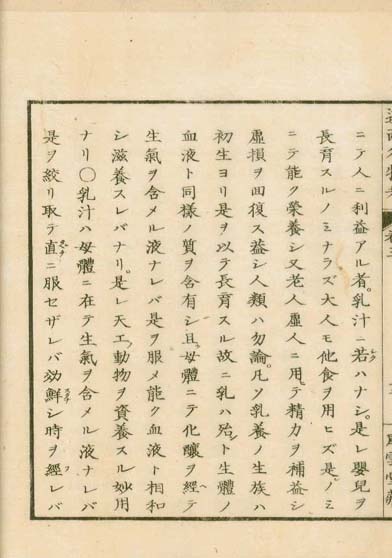 ニテ人ニ利益アル者。乳汁ニ若ハナシ。是レ嬰兒ヲ
長育スルノミナラズ大人モ他食ヲ用ヒズ是ノミ
ニテ能ク榮養シ又老人虚人ニ用テ精力ヲ補益シ
虚損ヲ回復ス益シ人類ハ勿論。凡ソ乳養ノ生族ハ
初生ヨリ是ヲ以テ長育スル故ニ乳ハ殆ント生體ノ
血液ト同様ノ質ヲ含有シ且母體ニテ化釀ヲ經テ
生氣ヲ含メル液ナレバ是ヲ服メ能ク血液ト相和
シ滋養スレバナリ。是レ天工動物ヲ資養スル妙用
ナリ〇乳汁ハ母體ニ在テ生氣ヲ含メル液ナレバ
是ヲ絞リ取テ直ニ服セザレバ効鮮シ時ヲ經レバ